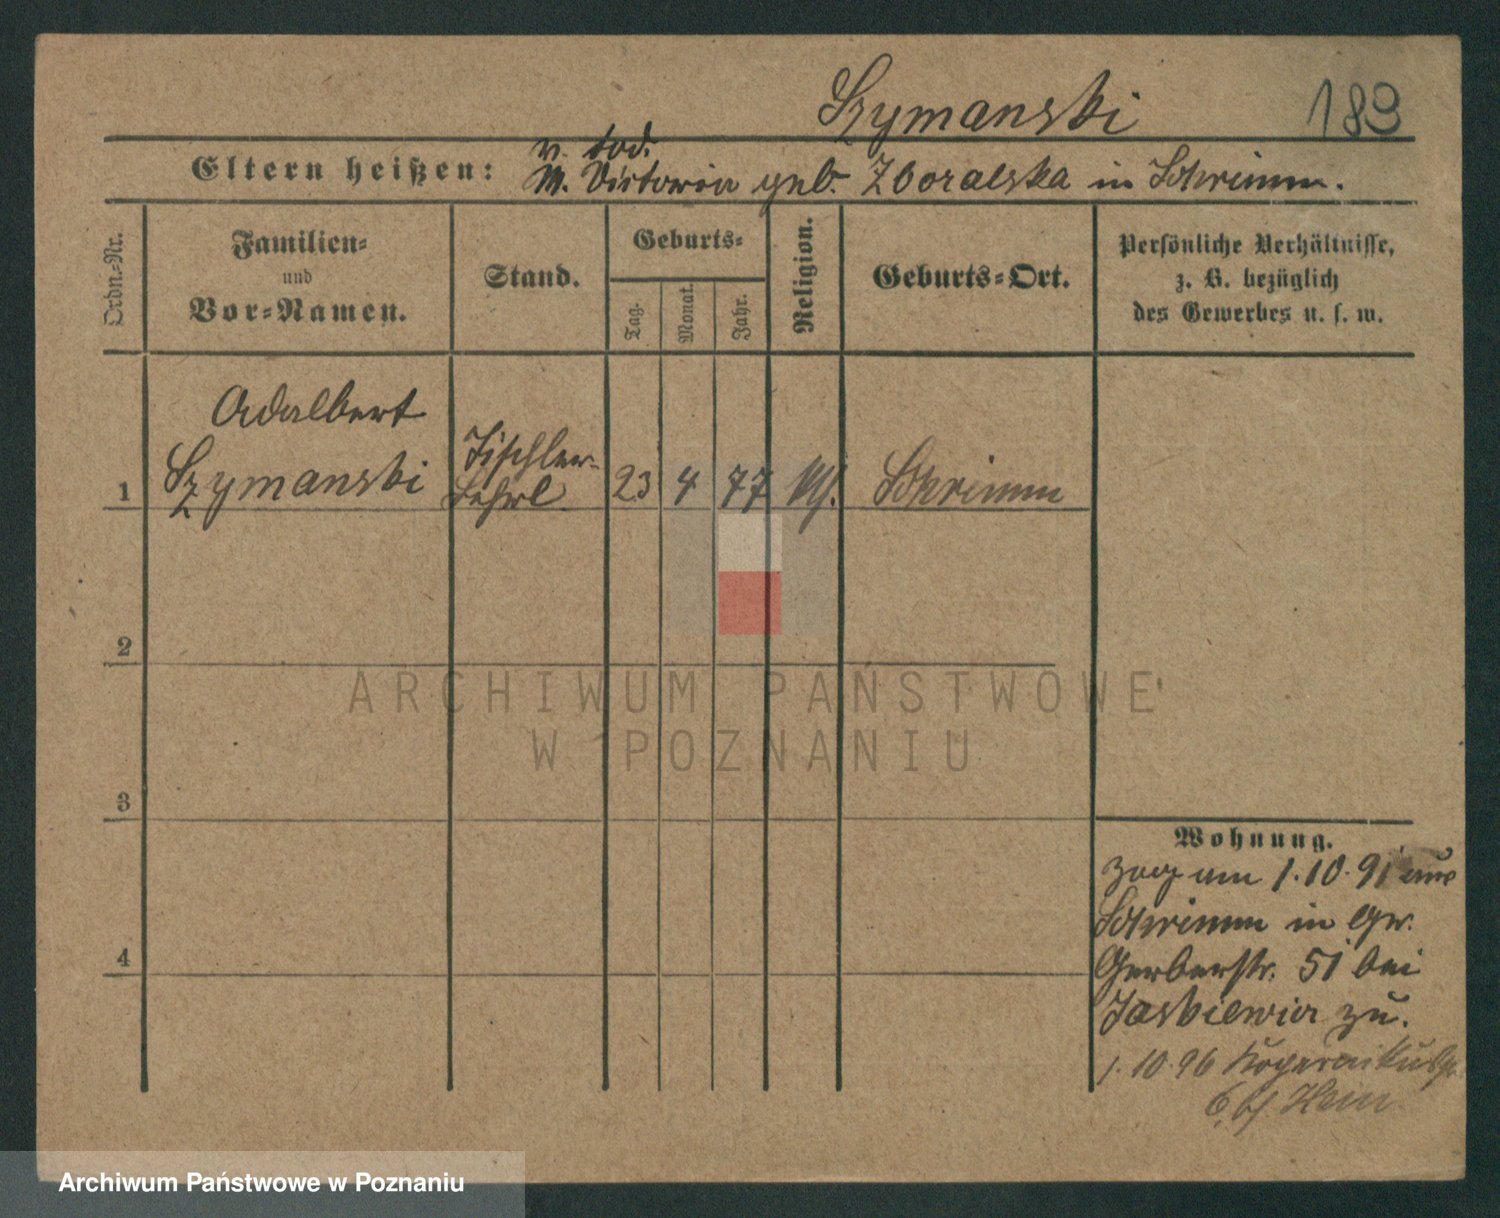 Szymanski 189
V. tod.
Eltern heißen: M. Victoria geb. Zboralska in Schrimm.
Ordn.-Nr.
Familien-
und
Vor-Namen.
Stand.
Geburts-
Tag.
Monat.
Jahr.
Religion.
Geburts-Ort.
Persönliche Verhältnisse,
z. B. bezüglich
des Gewerbes u. s. w.
Adalbert
1 Szymanski
Tischler-
Lehrl
23 4 77 kth. Schrimm
2
3
4
Wohnung.
zog am 1.10.91 aus
Schrimm in Gr.
Gerberstr. 51 bei
Jaskiewicz zu.
1.10.96
6, b/
ARCHIWUM PAŃSTWOWE
W POZNANIU
Archiwum Państwowe w Poznaniu